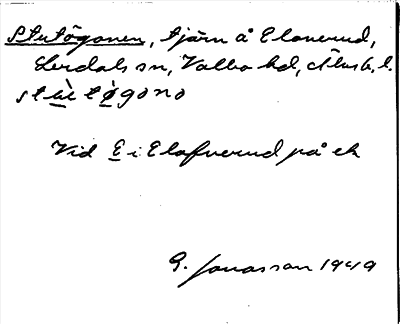 Stutögonen, tjärn å Elonerud,
Lerdals sn, Valbo hd, Älvsb. l.
Vid E i Elofverud på ek
G. Jonasson 1949